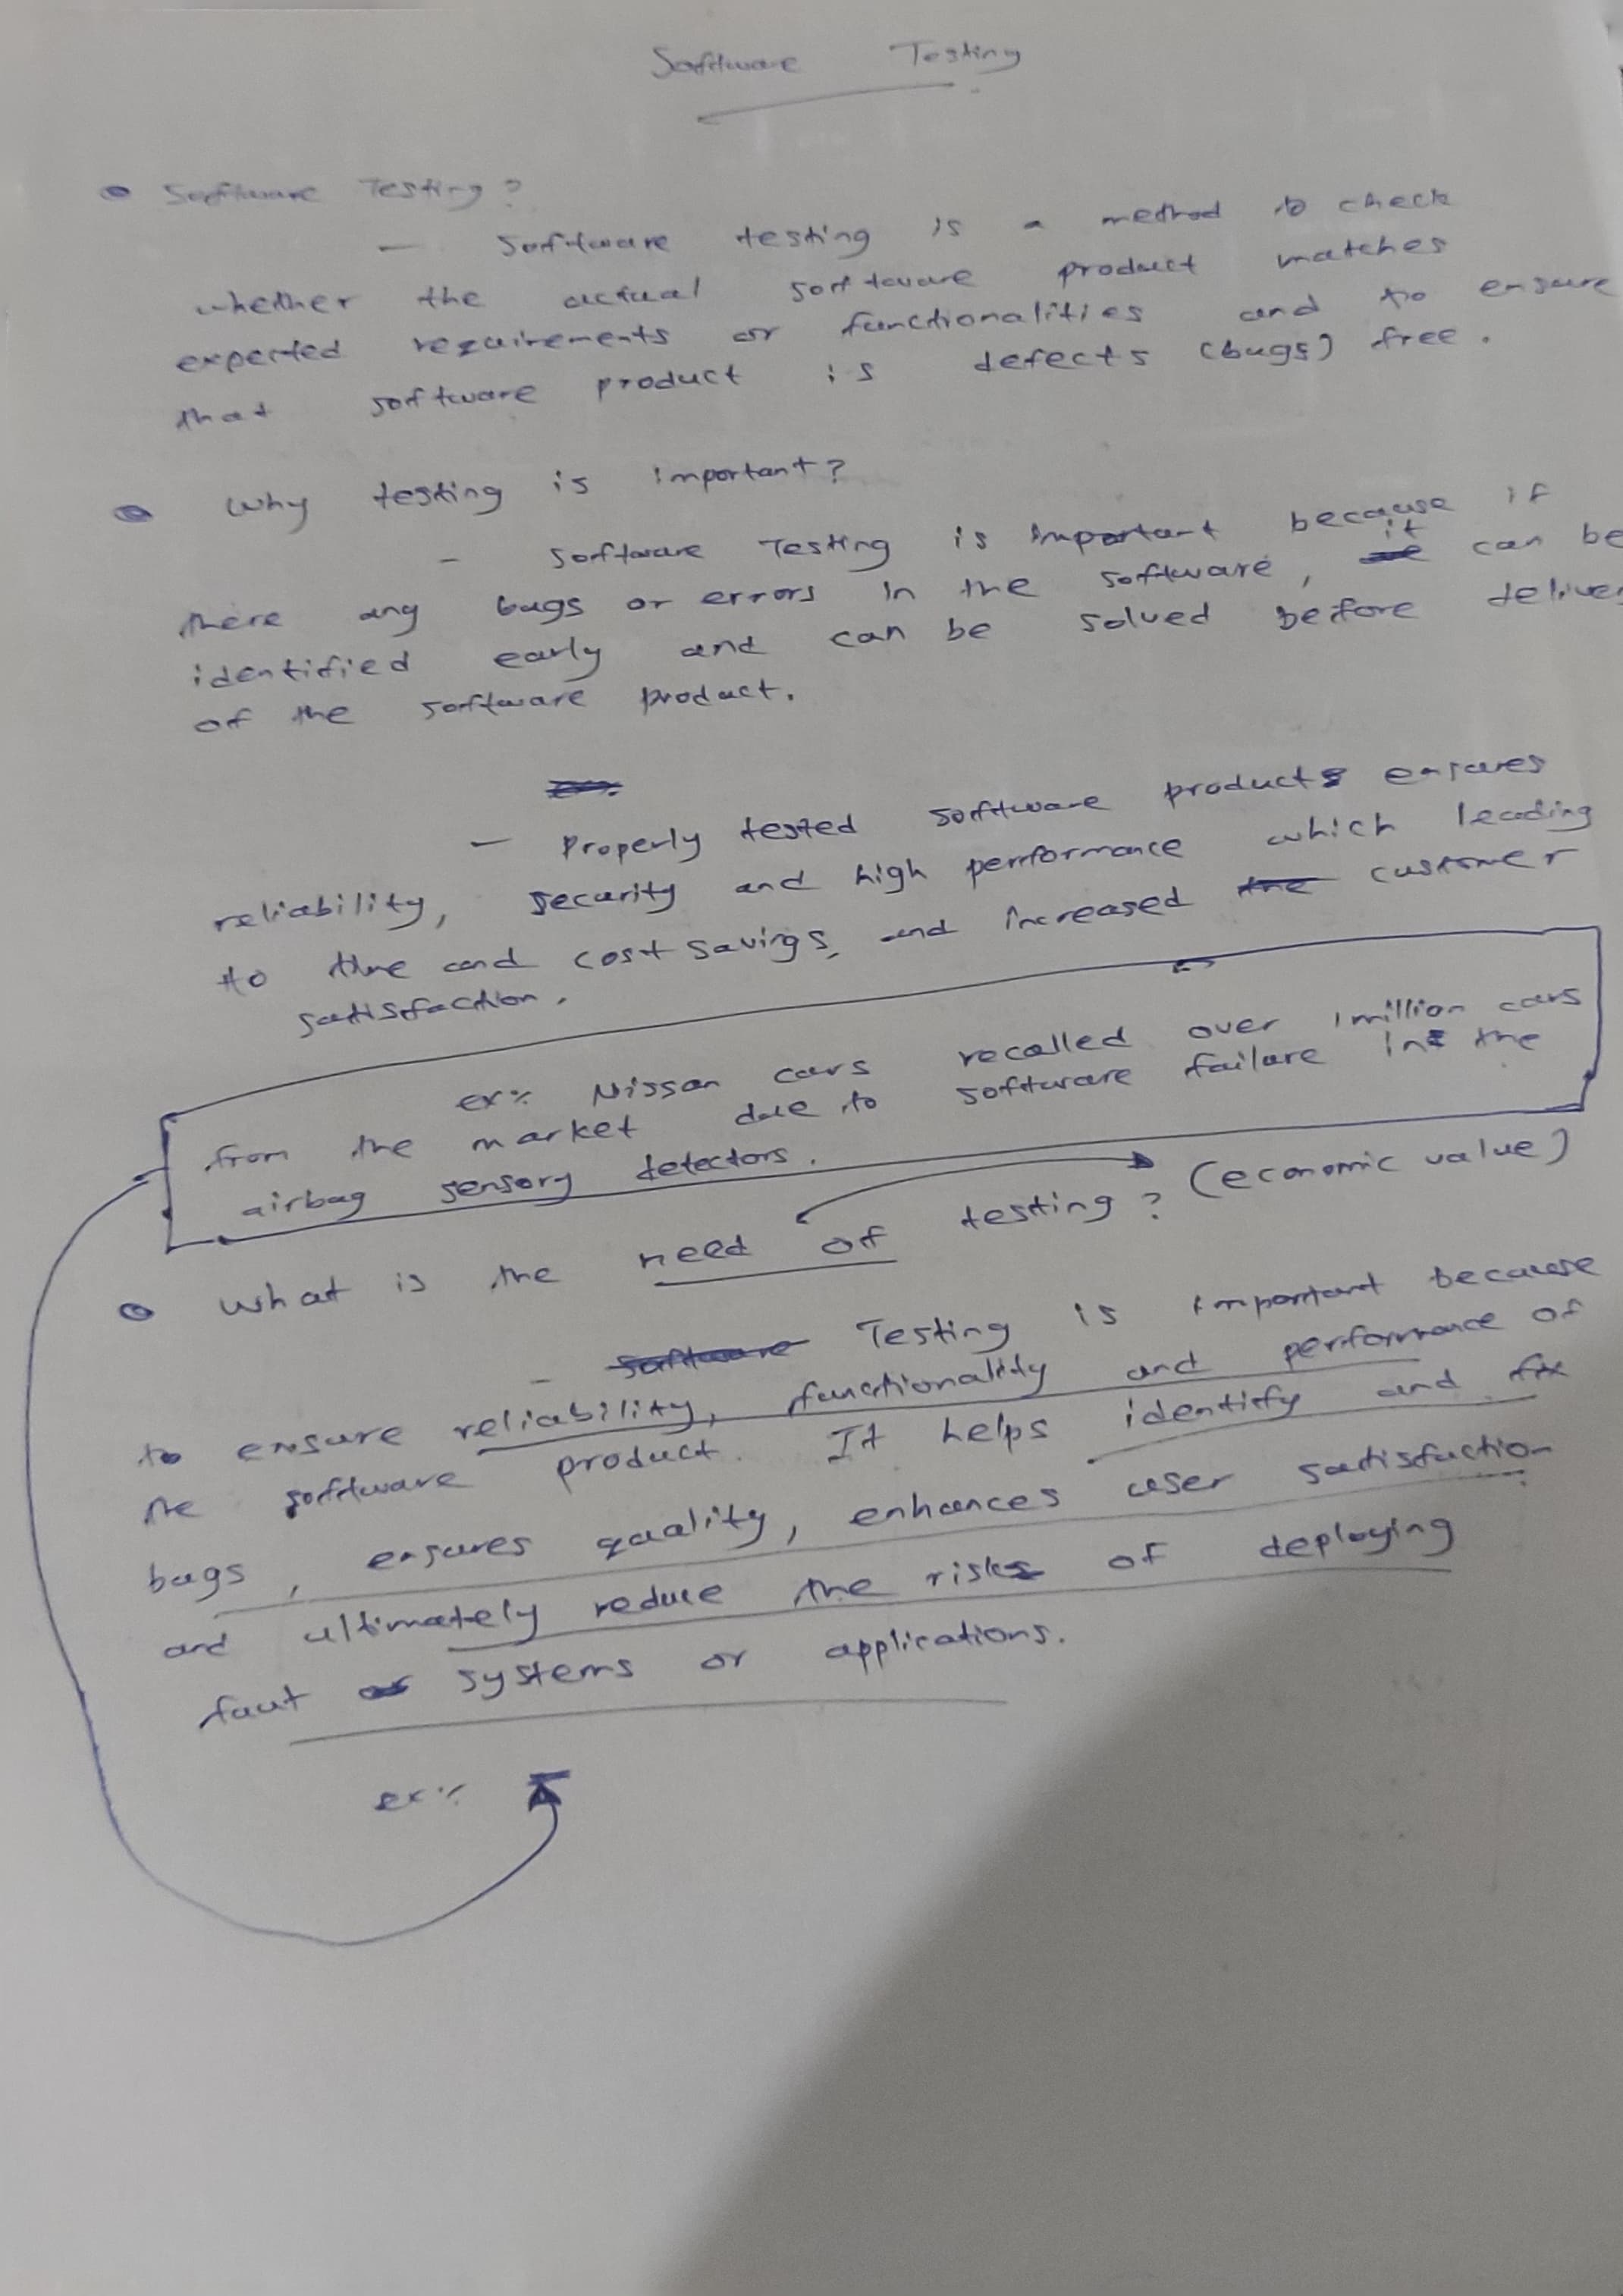 Software Testing
Software Testing?
— Software testing is a method to check
whether the actual software product matches
expected requirements or functionalities and to ensure
that software product is defects (bugs) free.
Why testing is important?
- Software Testing is important because if
there any bugs or errors in the software, it can be
identified early and can be solved before deliver
of the software product.
— Properly tested software products ensures
reliability, security and high performance which leading
to time and cost savings, and increased the customer
satisfaction.
ex: Nissan cars recalled over 1 million cars
from the market due to software failure in the
airbag sensory detectors.
What is the need of testing? (economic value)
- Software Testing is important because
to ensure reliability, functionality and performance of
the software product. It helps identify and fix
bugs, ensures quality, enhances user satisfaction
and ultimately reduce the risks of deploying
faut systems or applications.
ex: